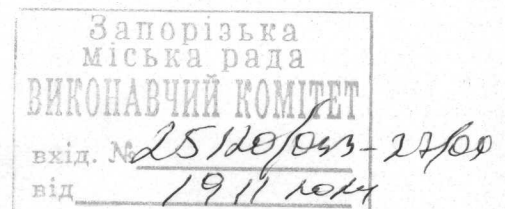 Запорізька
міська рада
ВИКОНАВЧИЙ КОМІТЕТ
вхід. № 25120/03-27/00
від 19 11 2024